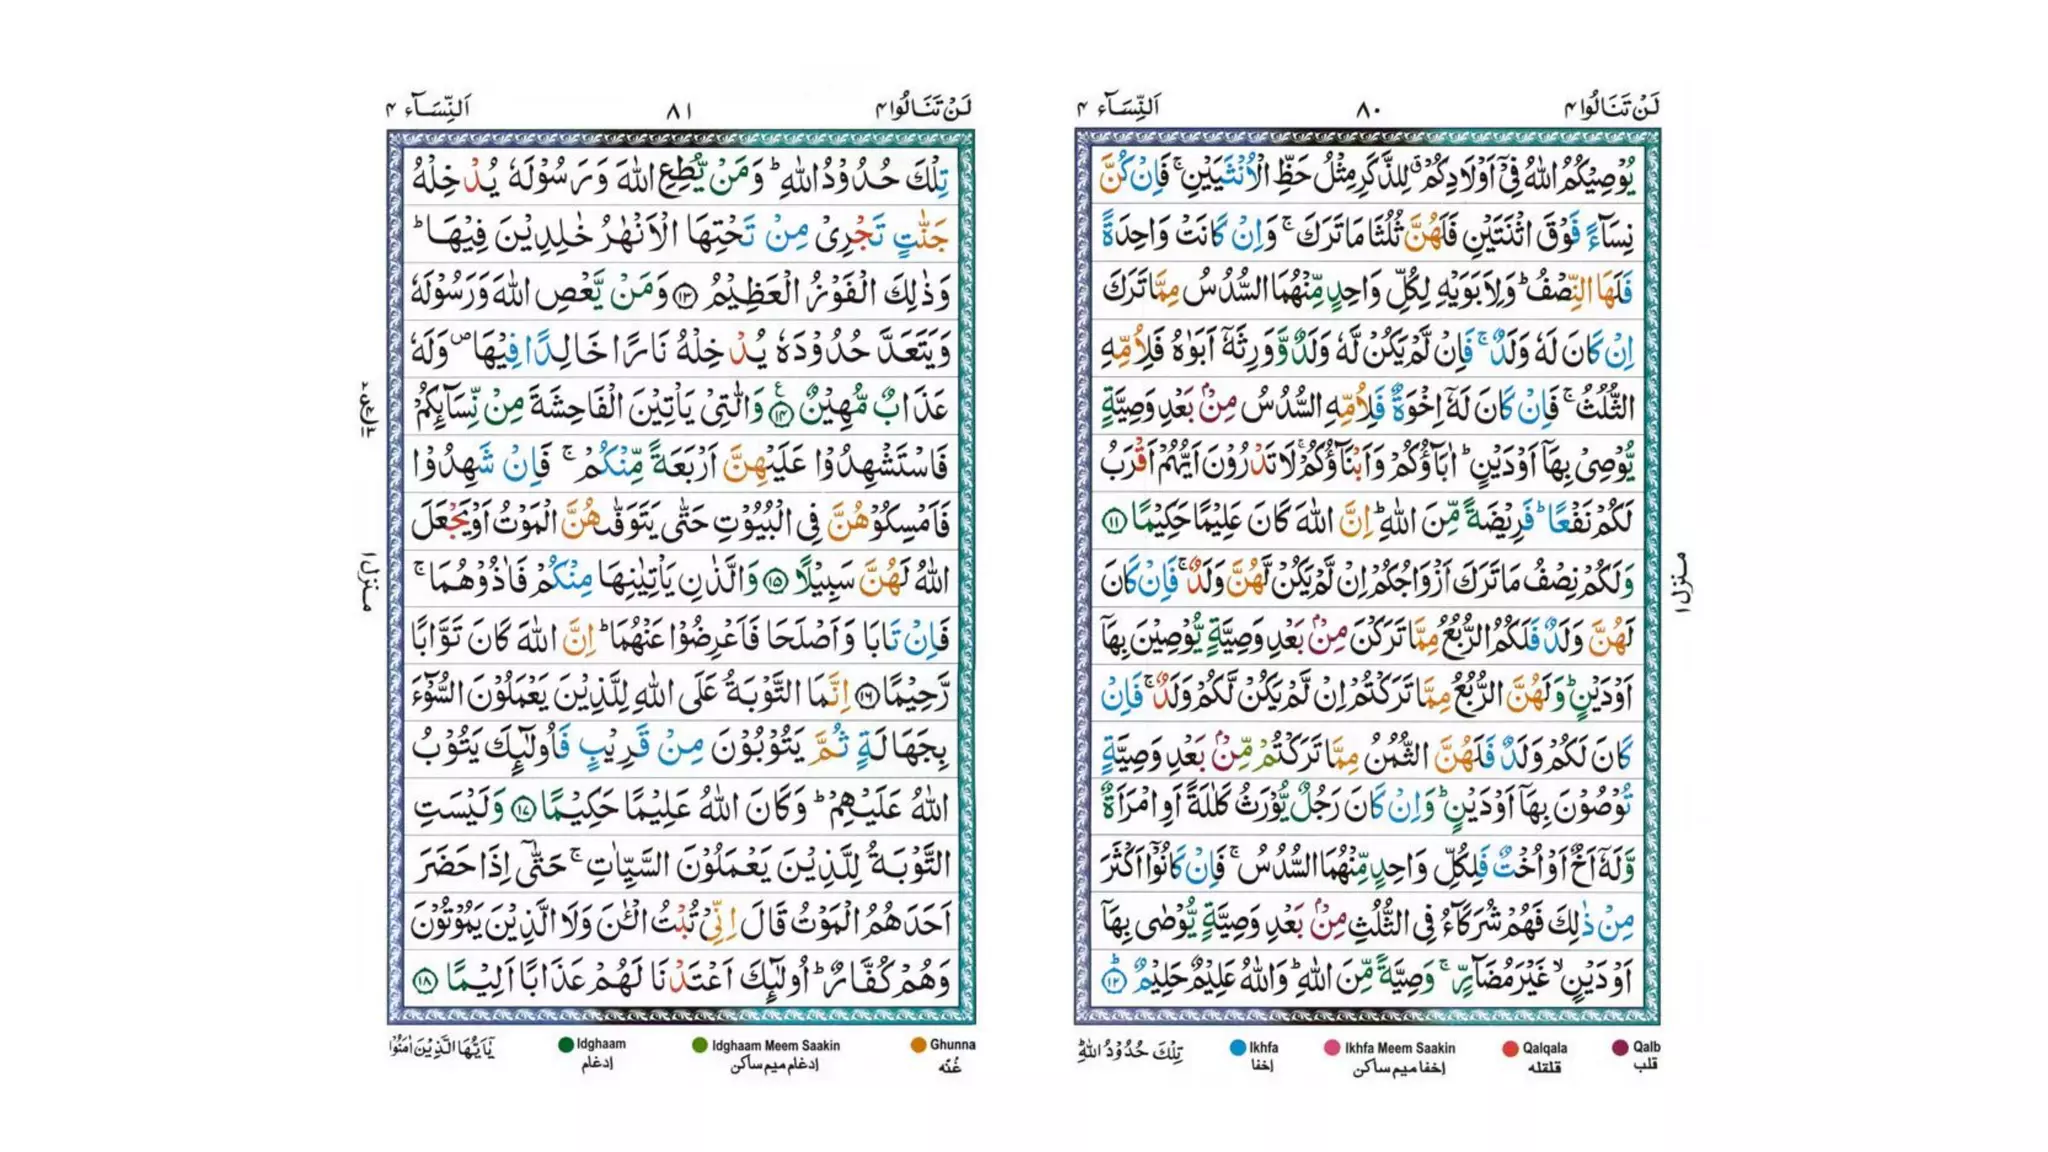 لَنۡ تَنَالُوۡا ۴
۸۰
اَلنِّسَآء ۴
يُوۡصِيۡكُمُ اللّٰهُ فِىۡۤ اَوۡلَادِكُمۡ‌ ۖ لِلذَّكَرِ مِثۡلُ حَظِّ الۡاُنۡثَيَيۡنِ‌ ۚ فَاِنۡ كُنَّ
نِسَآءً فَوۡقَ اثۡنَتَيۡنِ فَلَهُنَّ ثُلُثَا مَا تَرَكَ‌ ۚ وَاِنۡ كَانَتۡ وَاحِدَةً
فَلَهَا النِّصۡفُ‌ ؕ وَلِاَبَوَيۡهِ لِكُلِّ وَاحِدٍ مِّنۡهُمَا السُّدُسُ مِمَّا تَرَكَ
اِنۡ كَانَ لَهٗ وَلَدٌ‌ ۚ فَاِنۡ لَّمۡ يَكُنۡ لَّهٗ وَلَدٌ وَّوَرِثَهٗۤ اَبَوٰهُ فَلِاُمِّهِ
الثُّلُثُ‌ ۚ فَاِنۡ كَانَ لَهٗۤ اِخۡوَةٌ فَلِاُمِّهِ السُّدُسُ مِنۡۢ بَعۡدِ وَصِيَّةٍ
يُّوۡصِىۡ بِهَاۤ اَوۡ دَيۡنٍ‌ ؕ اٰبَآؤُكُمۡ وَاَبۡنَآؤُكُمۡ‌ ۚ لَا تَدۡرُوۡنَ اَيُّهُمۡ اَقۡرَبُ
لَكُمۡ نَفۡعًا‌ ؕ فَرِيۡضَةً مِّنَ اللّٰهِ ‌ؕ اِنَّ اللّٰهَ كَانَ عَلِيۡمًا حَكِيۡمًا ۝۱۱
وَلَكُمۡ نِصۡفُ مَا تَرَكَ اَزۡوَاجُكُمۡ اِنۡ لَّمۡ يَكُنۡ لَّهُنَّ وَلَدٌ‌ ۚ فَاِنۡ كَانَ
لَهُنَّ وَلَدٌ فَلَكُمُ الرُّبُعُ مِمَّا تَرَكۡنَ مِنۡۢ بَعۡدِ وَصِيَّةٍ يُّوۡصِيۡنَ بِهَاۤ
اَوۡ دَيۡنٍ‌ ؕ وَلَهُنَّ الرُّبُعُ مِمَّا تَرَكۡتُمۡ اِنۡ لَّمۡ يَكُنۡ لَّكُمۡ وَلَدٌ‌ ۚ فَاِنۡ
كَانَ لَكُمۡ وَلَدٌ فَلَهُنَّ الثُّمُنُ مِمَّا تَرَكۡتُمۡ مِّنۡۢ بَعۡدِ وَصِيَّةٍ
تُوۡصُوۡنَ بِهَاۤ اَوۡ دَيۡنٍ‌ ؕ وَاِنۡ كَانَ رَجُلٌ يُّوۡرَثُ كَلٰلَةً اَوِ امۡرَاَةٌ
وَّلَهٗۤ اَخٌ اَوۡ اُخۡتٌ فَلِكُلِّ وَاحِدٍ مِّنۡهُمَا السُّدُسُ‌ ۚ فَاِنۡ كَانُوۡۤا اَكۡثَرَ
مِنۡ ذٰلِكَ فَهُمۡ شُرَكَآءُ فِى الثُّلُثِ مِنۡۢ بَعۡدِ وَصِيَّةٍ يُّوۡصٰى بِهَاۤ
اَوۡ دَيۡنٍ ۙ غَيۡرَ مُضَآرٍّ‌ ۚ وَصِيَّةً مِّنَ اللّٰهِ‌ ؕ وَاللّٰهُ عَلِيۡمٌ حَلِيۡمٌ ؕ‏ ۝۱۲
منزل ۱
تِلۡكَ حُدُوۡدُ اللّٰهِ‌ ؕ
Ikhfa
اِخفا
Ikhfa Meem Saakin
اِخفا میم ساکن
Qalqala
قلقله
Qalb
قلب
لَنۡ تَنَالُوۡا ۴
۸۱
اَلنِّسَآء ۴
تِلۡكَ حُدُوۡدُ اللّٰهِ‌ ؕ وَمَنۡ يُّطِعِ اللّٰهَ وَرَسُوۡلَهٗ يُدۡخِلۡهُ
جَنّٰتٍ تَجۡرِىۡ مِنۡ تَحۡتِهَا الۡاَنۡهٰرُ خٰلِدِيۡنَ فِيۡهَا‌ ؕ
وَذٰلِكَ الۡفَوۡزُ الۡعَظِيۡمُ ۝۱۳ وَمَنۡ يَّعۡصِ اللّٰهَ وَرَسُوۡلَهٗ
وَيَتَعَدَّ حُدُوۡدَهٗ يُدۡخِلۡهُ نَارًا خَالِدًا فِيۡهَا ص وَلَهٗ
عَذَابٌ مُّهِيۡنٌ ۝۱۴ وَالّٰتِىۡ يَاۡتِيۡنَ الۡفَاحِشَةَ مِنۡ نِّسَآئِكُمۡ
فَاسۡتَشۡهِدُوۡا عَلَيۡهِنَّ اَرۡبَعَةً مِّنۡكُمۡ‌ ۚ فَاِنۡ شَهِدُوۡا
فَاَمۡسِكُوۡهُنَّ فِى الۡبُيُوۡتِ حَتّٰى يَتَوَفّٰٮهُنَّ الۡمَوۡتُ اَوۡ يَجۡعَلَ
اللّٰهُ لَهُنَّ سَبِيۡلًا ۝۱۵ وَالَّذٰنِ يَاۡتِيٰنِهَا مِنۡكُمۡ فَاٰذُوۡهُمَا‌ ۚ
فَاِنۡ تَابَا وَاَصۡلَحَا فَاَعۡرِضُوۡا عَنۡهُمَا‌ ؕ اِنَّ اللّٰهَ كَانَ تَوَّابًا
رَّحِيۡمًا ۝۱۶ اِنَّمَا التَّوۡبَةُ عَلَى اللّٰهِ لِلَّذِيۡنَ يَعۡمَلُوۡنَ السُّوۡٓءَ
بِجَهَالَةٍ ثُمَّ يَتُوۡبُوۡنَ مِنۡ قَرِيۡبٍ فَاُولٰٓئِكَ يَتُوۡبُ
اللّٰهُ عَلَيۡهِمۡ‌ ؕ وَكَانَ اللّٰهُ عَلِيۡمًا حَكِيۡمًا ۝۱۷ وَلَيۡسَتِ
التَّوۡبَةُ لِلَّذِيۡنَ يَعۡمَلُوۡنَ السَّيِّاٰتِ‌ ۚ حَتّٰۤى اِذَا حَضَرَ
اَحَدَهُمُ الۡمَوۡتُ قَالَ اِنِّىۡ تُبۡتُ الۡـٰٔنَ وَلَا الَّذِيۡنَ يَمُوۡتُوۡنَ
وَهُمۡ كُفَّارٌ ‌ؕ اُولٰٓئِكَ اَعۡتَدۡنَا لَهُمۡ عَذَابًا اَ لِيۡمًا ۝۱۸
منزل ۱
يٰۤاَيُّهَا الَّذِيۡنَ اٰمَنُوۡا
Idghaam
اِدغام
Idghaam Meem Saakin
اِدغام میم ساکن
Ghunna
غُنّه